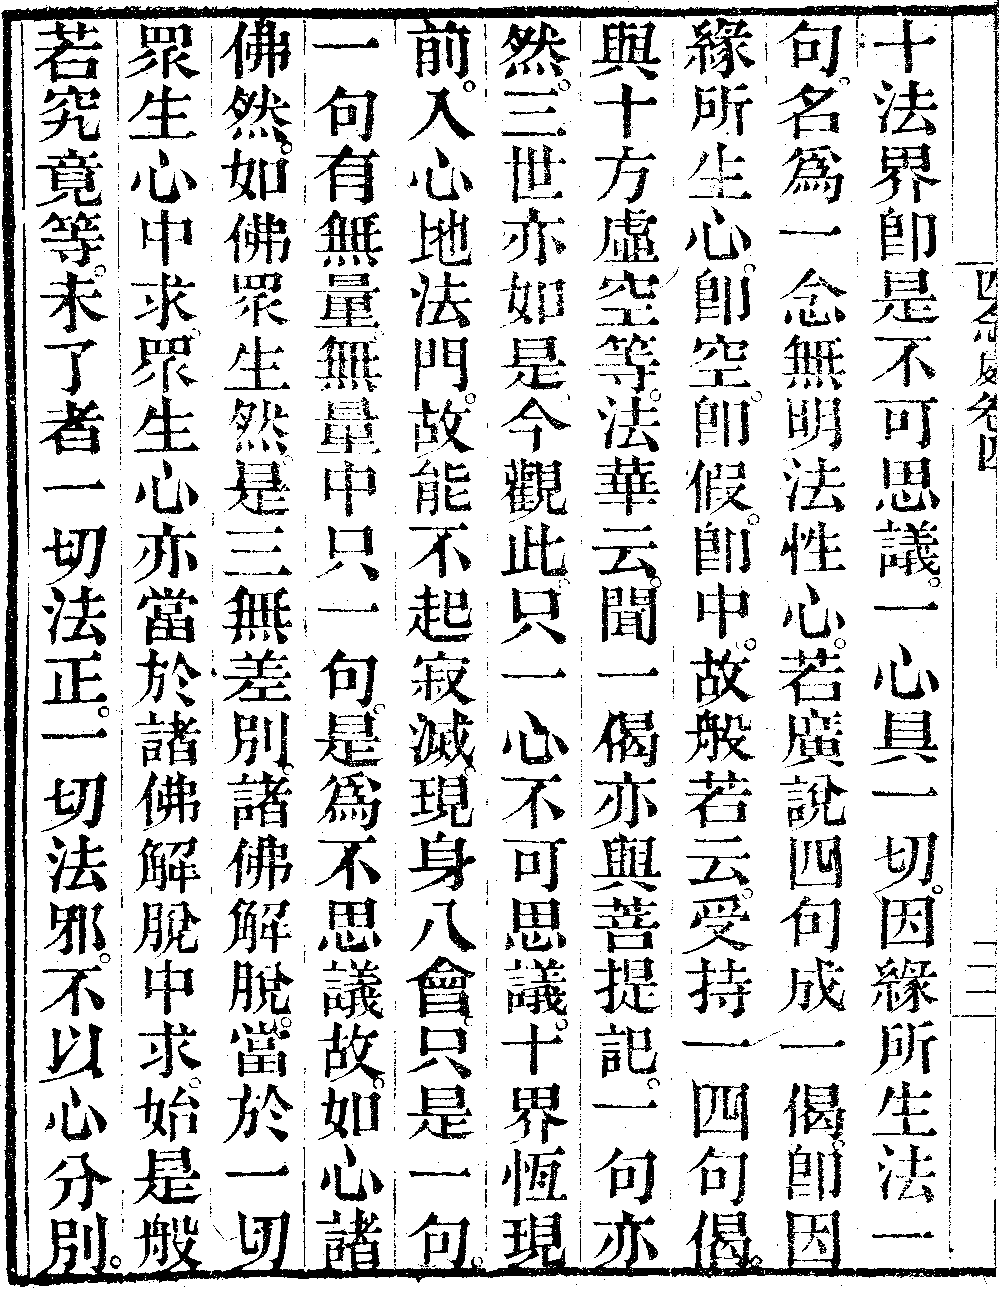 十法界卽是不可思議。一心具一切。因緣所生法一
句。名爲一念無明法性心。若廣說四句成一偈。卽因
緣所生心。卽空。卽假。卽中。故般若云。受持一四句偈。
與十方虛空等。法華云。聞一偈亦與菩提記。一句亦
然。三世亦如是今觀此只一心不可思議。十界恆現
前。入心地法門。故能不起寂滅現身八會只是一句。
一句有無量無量中只一句。是爲不思議故。如心諸
佛然。如佛眾生然是三無差別。諸佛解脫。當於一切
眾生心中求。眾生心亦當於諸佛解脫中求。始是般
若究竟等。未了者一切法正。一切法邪。不以心分別。
卷四
二